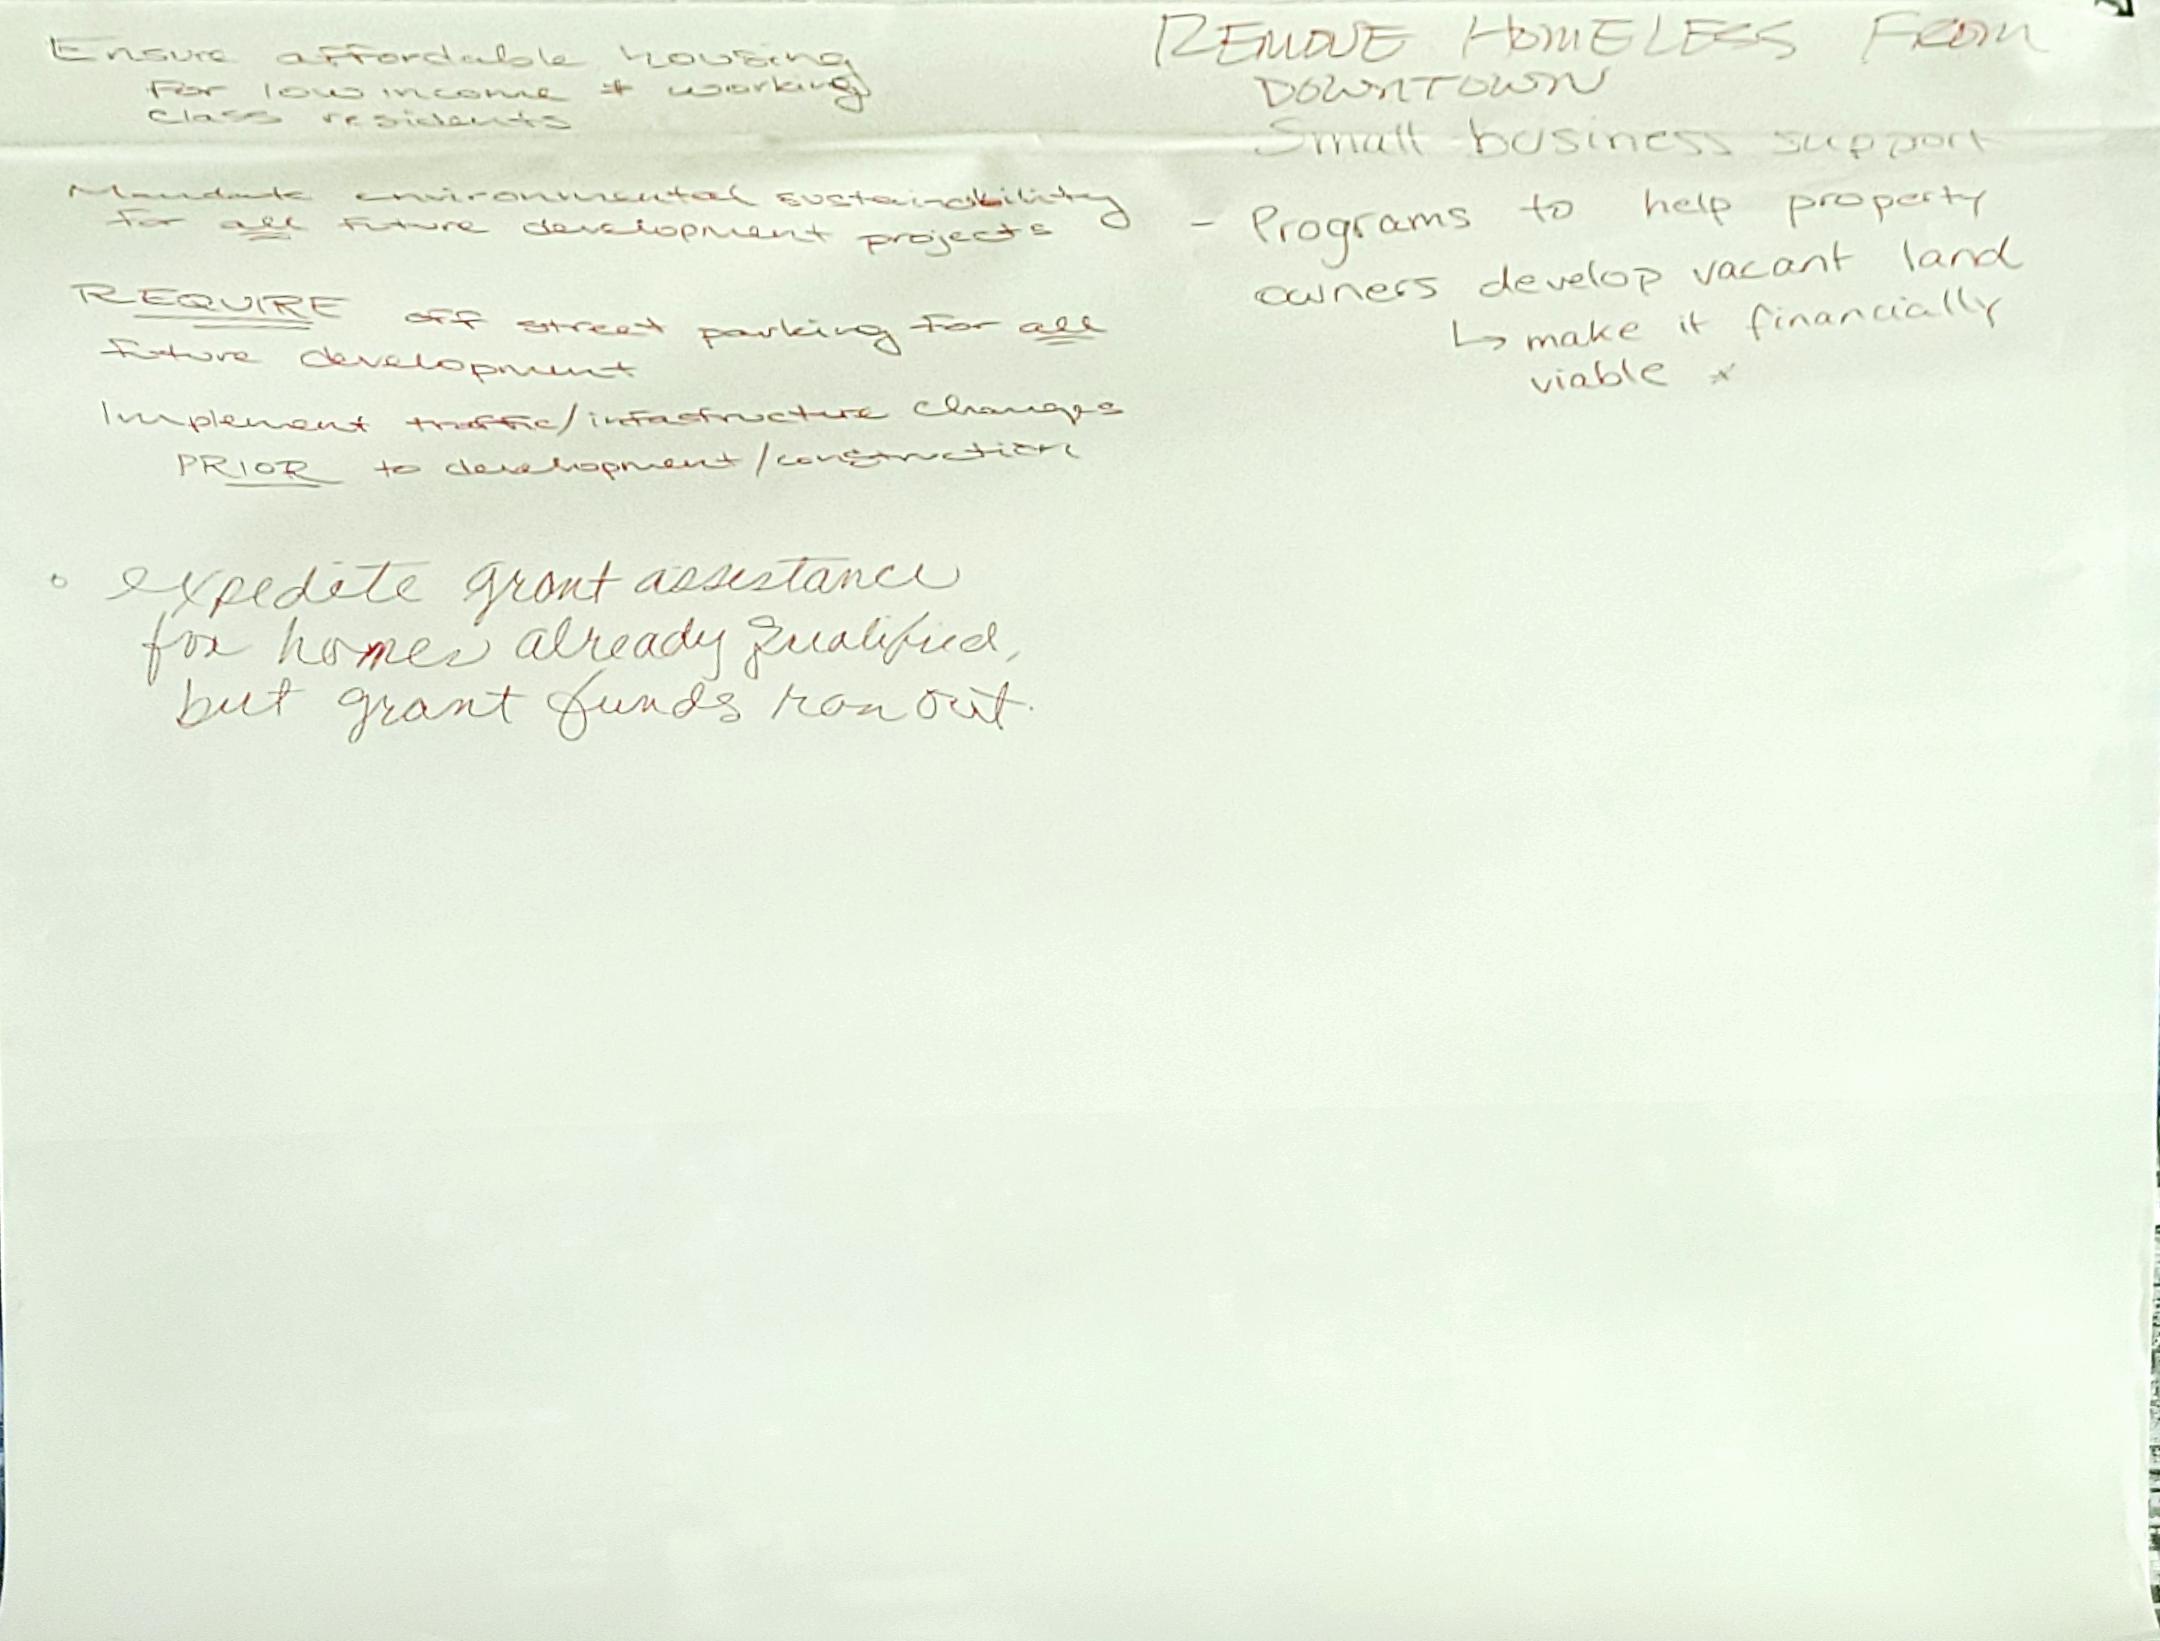 Ensure affordable housing
for low income + working
class residents
Mandate environmental sustainability
for all future development projects
REQUIRE off street parking for all
future development
Implement traffic/infastructure changes
PRIOR to development/construction
• expedite grant assistance
for homes already qualified,
but grant funds ran out.
REMOVE HOMELESS FROM
DOWNTOWN
Small business support
- Programs to help property
owners develop vacant land
↳ make it financially
viable *